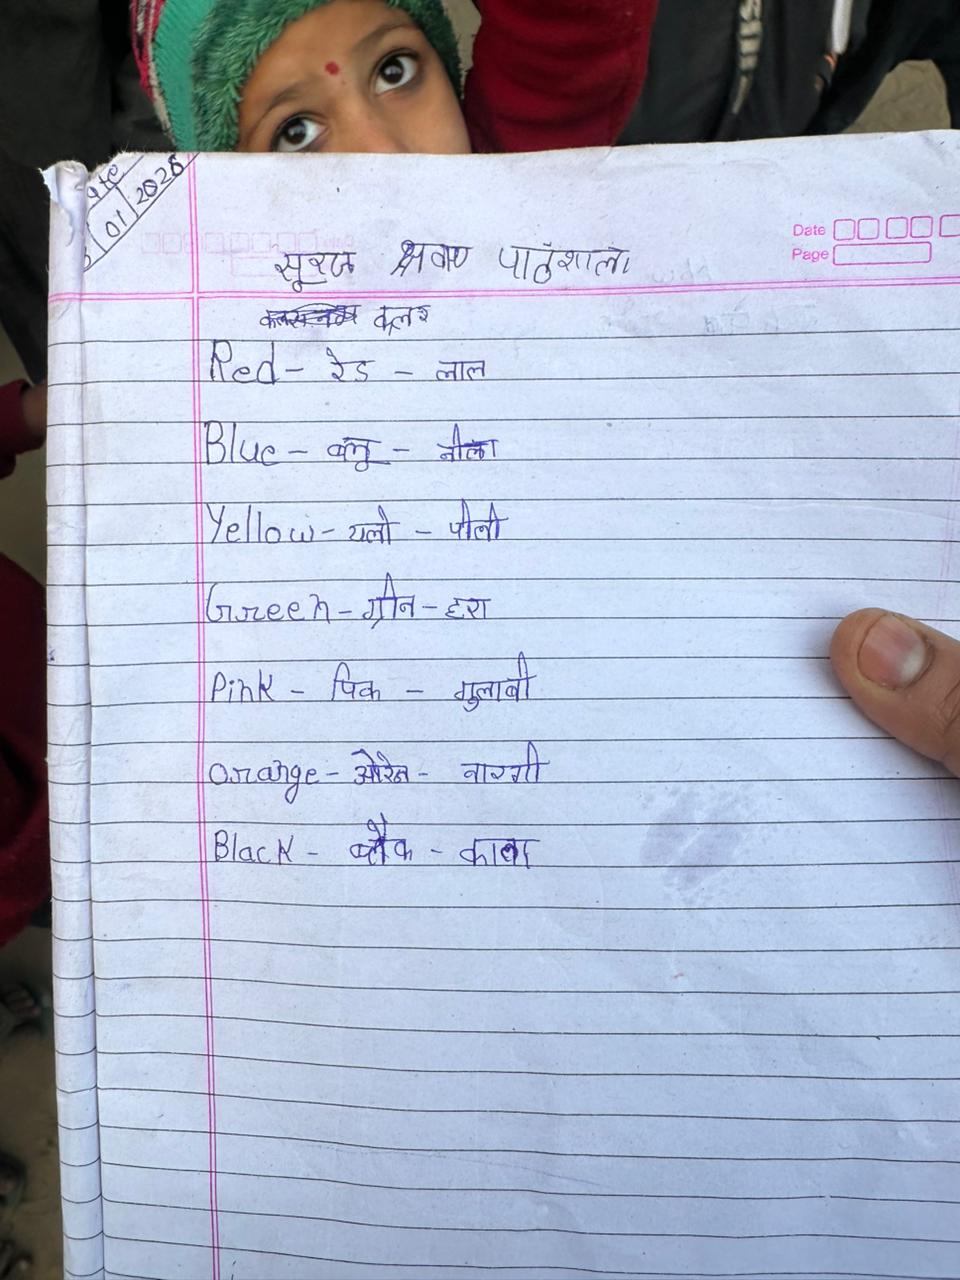 ate
01 2026
Date
Page
सूरज श्रवण पाठशाला
कलर
Red - रेड - लाल
Blue - ब्लू - नीला
Yellow - यलो - पीली
Green - ग्रीन - हरा
Pink - पिक - गुलाबी
Orange - ओरेन - नारगी
Black - ब्लैक - काला